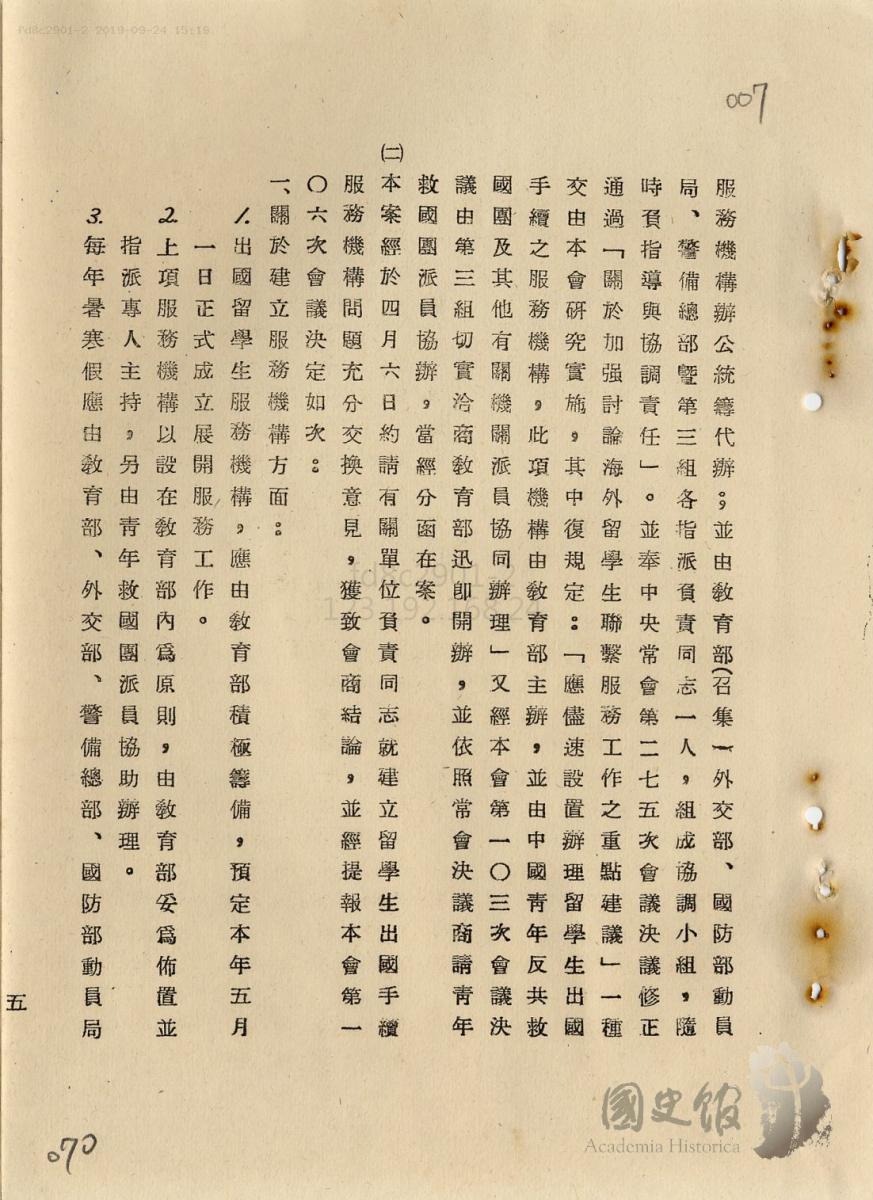 fd8c2901-2 2019-09-24 15:19
007
服務機構辦公統籌代辦；並由教育部(召集)外交部、國防部動員
局、警備總部暨第三組各指派負責同志一人，組成協調小組，隨
時負指導與協調責任」。並奉中央常會第二七五次會議決議修正
通過「關於加强討論海外留學生聯繫服務工作之重點建議」一種
交由本會研究實施，其中復規定：「應儘速設置辦理留學生出國
手續之服務機構，此項機構由教育部主辦，並由中國青年反共救
國團及其他有關機關派員協同辦理」又經本會第一〇三次會議決
議由第三組切實洽商教育部迅卽開辦，並依照常會決議商請青年
救國團派員協辦，當經分函在案。
㈡本案經於四月六日約請有關單位負責同志就建立留學生出國手續
服務機構問題充分交換意見，獲致會商結論，並經提報本會第一
〇六次會議決定如次：
一、關於建立服務機構方面：
1.出國留學生服務機構，應由教育部積極籌備，預定本年五月
一日正式成立展開服務工作。
2.上項服務機構以設在教育部內爲原則，由教育部妥爲佈置並
指派專人主持，另由青年救國團派員協助辦理。
3.每年暑寒假應由教育部、外交部、警備總部、國防部動員局
五
070
國史館
Academia Historica